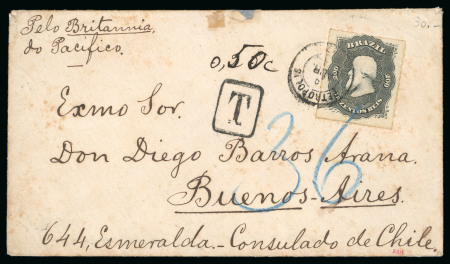 Pelo Britannia,
do Pacifico.
30.-
0,50c
T
BRAZIL
200
200
ZENTOS REIS
PETROPOLIS
Exmo Sor.
Don Diego Barros Arana.
36
Buenos-Aires.
644, Esmeralda.- Consulado de Chile.